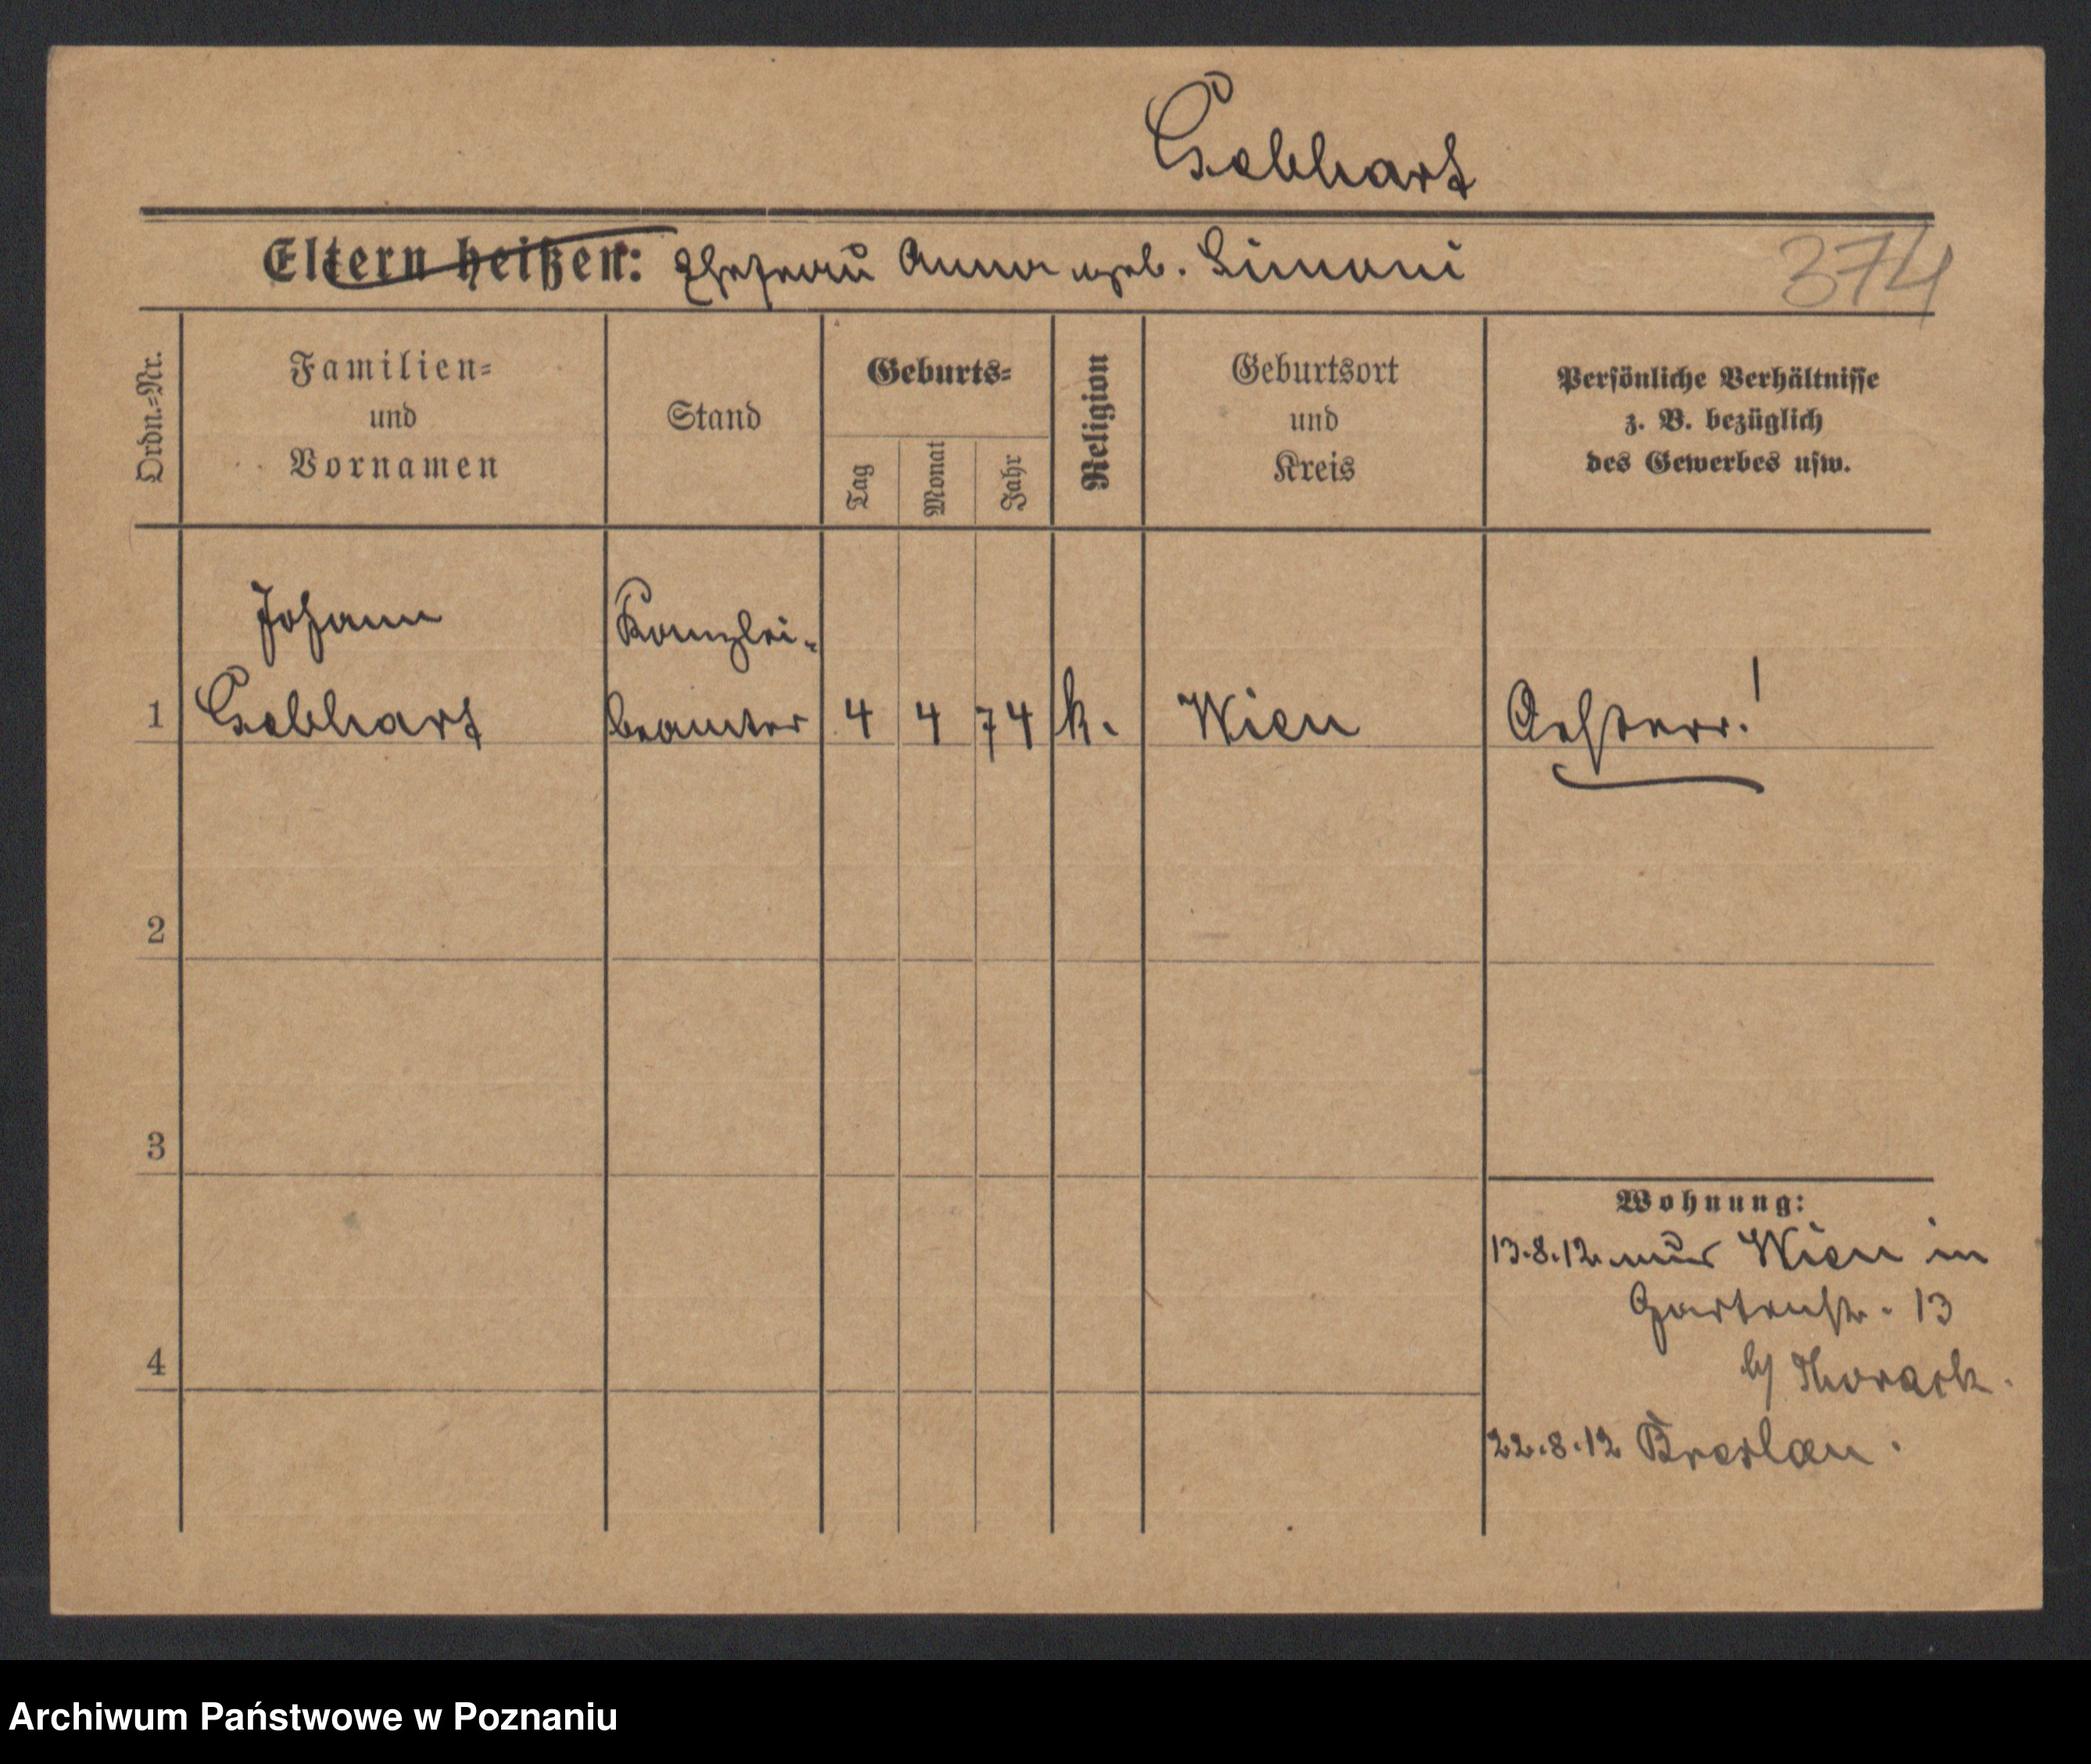 Gebhart
Eltern heißen: Ehefrau Anna geb. Simoni
374
Ordn.=Nr.
Familien=
und
Vornamen
Stand
Geburts=
Tag
Monat
Jahr
Religion
Geburtsort
und
Kreis
Persönliche Verhältnisse
z. B. bezüglich
des Gewerbes usw.
Johann Kanzlei-
1 Gebhart beamter 4 4 74 k. Wien Oesterr.!
2
3
Wohnung:
13.8.12 aus Wien in
Gartenstr. 13
4
b/ Thorack.
22.8.12 Breslau.
Archiwum Państwowe w Poznaniu